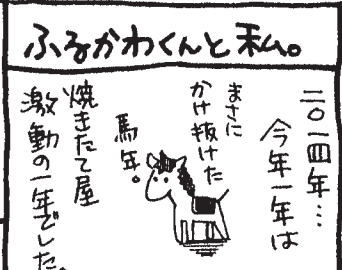 ふるかわくんと私。
二〇一四年…
今年一年は
まさに
かけ抜けた
馬年。
焼きたて屋
激動の一年でした。